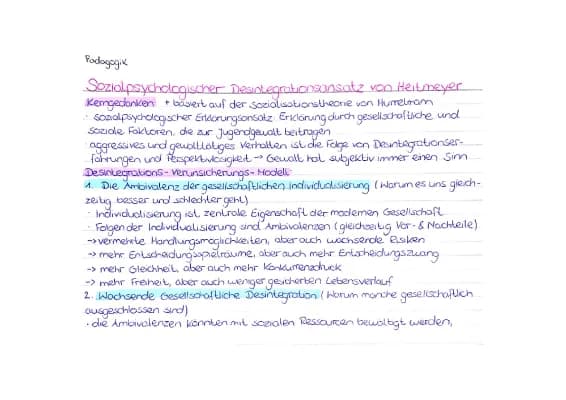 Pädagogik
Sozialpsychologischer Desintegrationsansatz von Heitmeyer
Kerngedanken: + basiert auf der Sozialisationstheorie von Hurrelmann
· sozialpsychologischer Erklärungsansatz: Erklärung durch gesellschaftliche und
soziale Faktoren, die zur Jugendgewalt beitragen
· aggressives und gewalttätiges Verhalten ist die Folge von Desintegrationser-
fahrungen und Perspektivlosigkeit → Gewalt hat subjektiv immer einen Sinn
Desintegrations-Verunsicherungs-Modell:
1. Die Ambivalenz der gesellschaftlichen Individualisierung (Warum es uns gleich-
zeitig besser und schlechter geht)
· Individualisierung ist zentrale Eigenschaft der modernen Gesellschaft
· Folgen der Individualisierung sind Ambivalenzen (gleichzeitig Vor- & Nachteile)
→ vermehrte Handlungsmöglichkeiten, aber auch wachsende Risiken
→ mehr Entscheidungsspielräume, aber auch mehr Entscheidungszwang
→ mehr Gleichheit, aber auch mehr Konkurrenzdruck
→ mehr Freiheit, aber auch weniger gesicherten Lebensverlauf
2. Wachsende Gesellschaftliche Desintegration (Warum manche gesellschaftlich
ausgeschlossen sind)
· die Ambivalenzen könnten mit sozialen Ressourcen bewältigt werden,